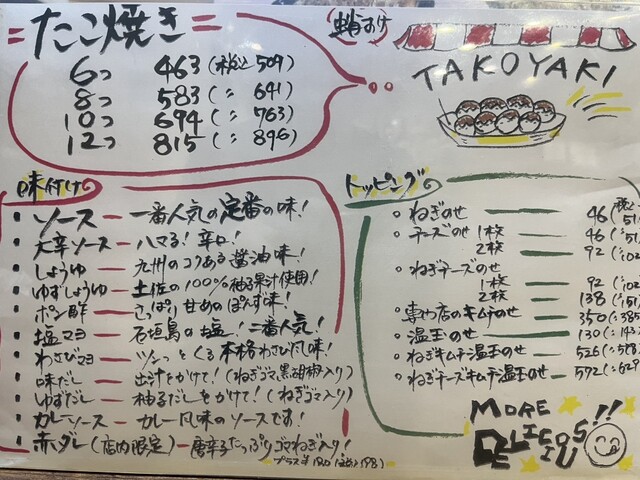 たこ焼き
6コ 463(税込509)
8コ 583(〃641)
10コ 694(〃763)
12コ 815(〃896)
TAKOYAKI
味付け
・ソース ー 一番人気の定番の味!
・大辛ソース ー ハマる!辛口!
・しょうゆ ー 九州のコクある醤油味!
・ゆずしょうゆ ー 土佐の100%柚子果汁使用!
・ポン酢 ー さっぱり甘めのぽんず味!
・塩マヨ ー 石垣島の塩!二番人気!
・わさびマヨ ー ツンっとくる本格わさび風味!
・味だし ー 出汁をかけて!(ねぎゴマ、黒胡椒入り)
・ゆずだし ー 柚子だしをかけて!(ねぎゴマ入り)
・カレーソース ー カレー風味のソースです!
・赤ダレ(店内限定)ー 唐辛子たっぷりゴマねぎ入り!
プラス¥180
トッピング
・ねぎのせ ー 46(税込51
・チーズのせ 1枚 ー 46(〃51
2枚 ー 92(〃102
・ねぎチーズのせ
1枚 ー 92(〃102
2枚 ー 138(〃151
・専門店のキムチのせ ー 350(〃385
・温玉のせ ー 130(〃143
・ねぎキムチ温玉のせ ー 526(〃578
・ねぎチーズキムチ温玉のせ ー 572(〃629
MORE
DELICIOUS!!